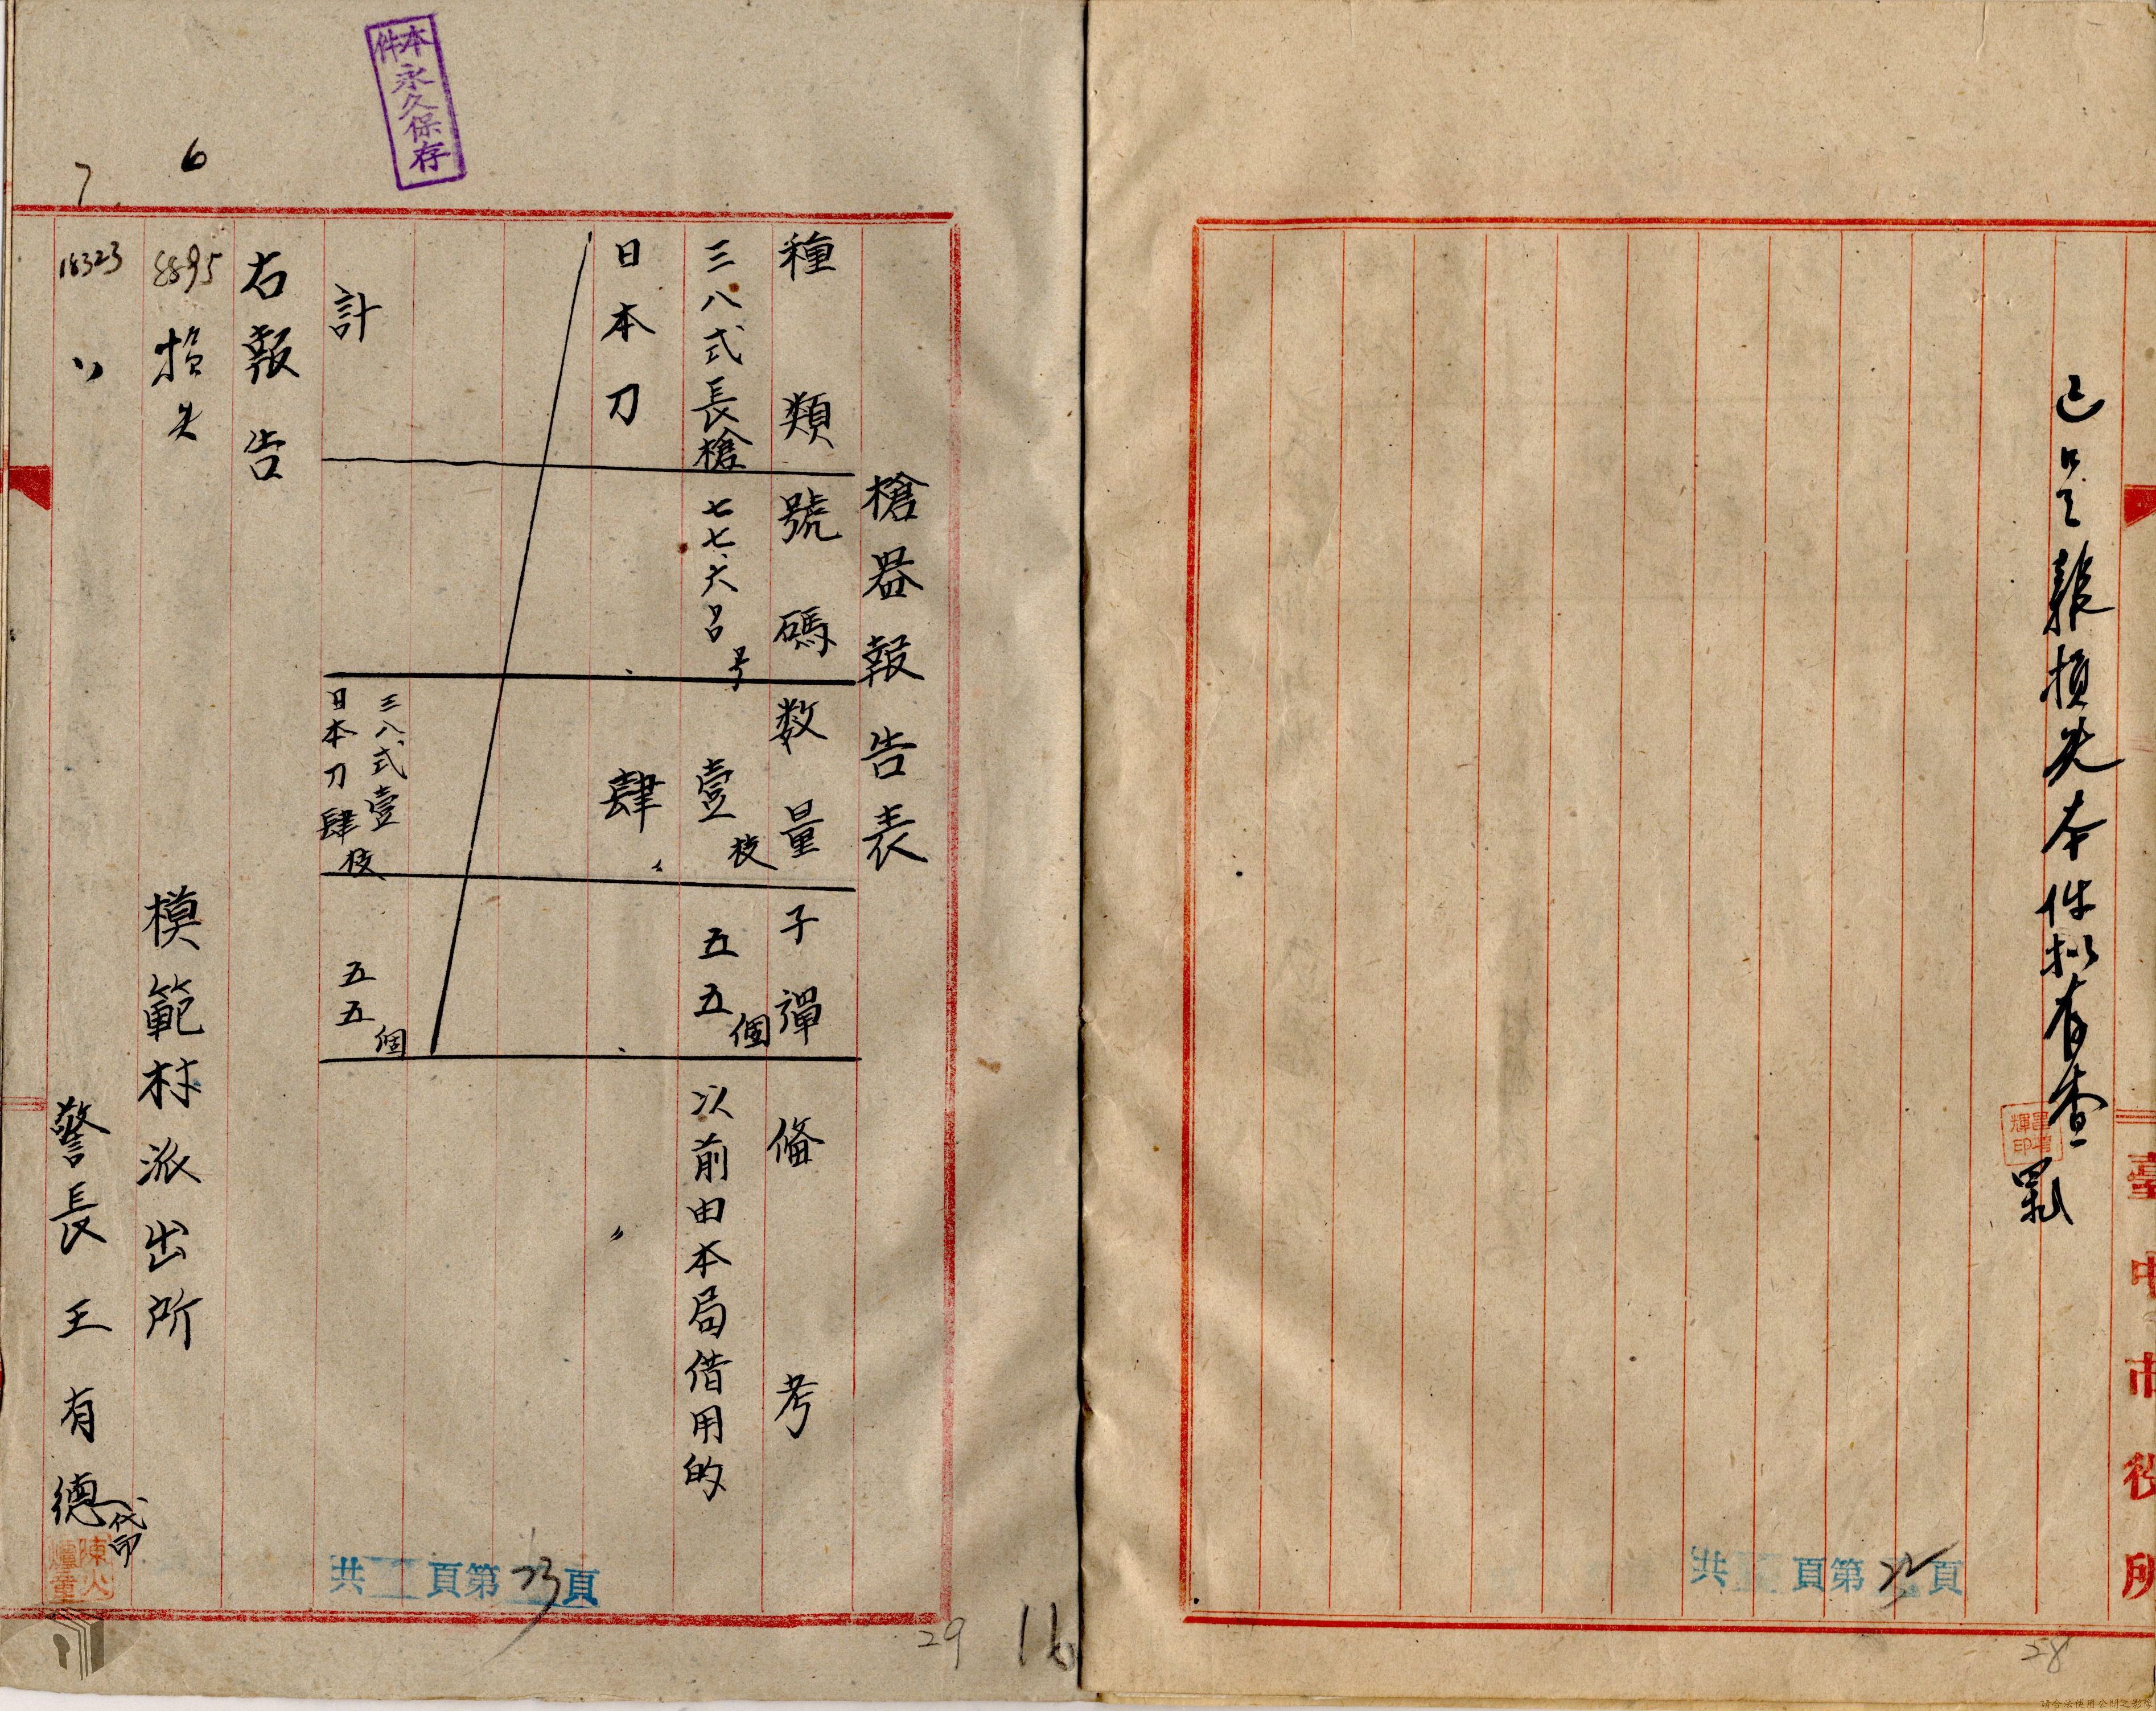 已呈報損失本件擬存查
臺中市役所
共 頁第 頁
28
本件永久保存
槍器報告表
種類 號碼 数量 子彈 俻考
三八式長槍 七七六呂号 壹枝 五五個 以前由本局借用的
日本刀 肆〃 〃
計 三八式壹 日本刀肆枝 五五個
右報告
6
8895 損失
模範村派出所
7
18323 〃
警長王有德代印
共 頁第23頁
29
16
請合法使用公開之影像